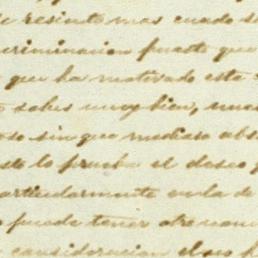 e resinto mas cuado s
criminacion puesto que
que ha motivado este
sabes muy bien, nues
oso sin que mediase abs
sto lo prueba el deseo
articularmente en la de
puede tener otro nom
consideracion el deseo h